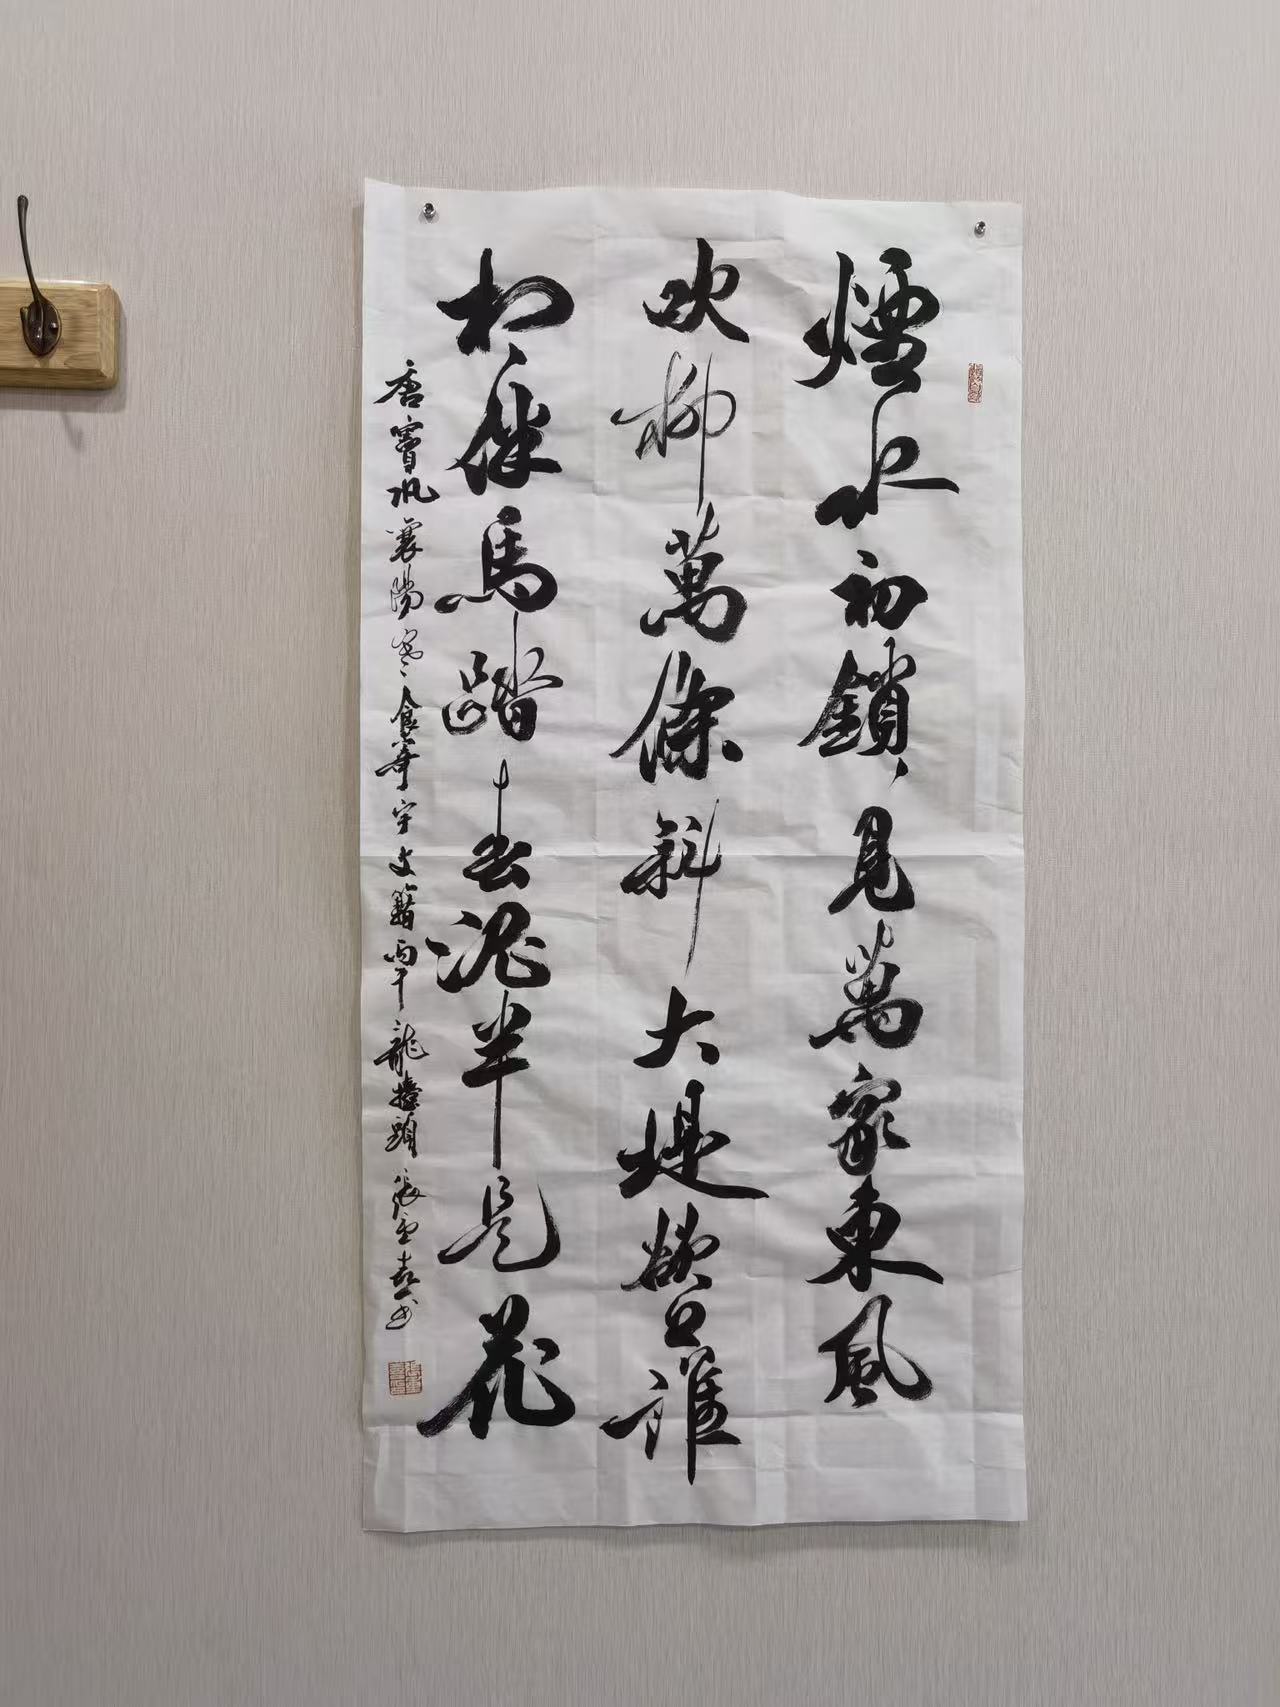 煙水初鎖見萬家東風
吹柳萬條斜大堤欲上誰
相伴馬踏春泥半是花
唐竇巩襄陽寒食寄宇文籍丙午龍擡頭張雲喜书